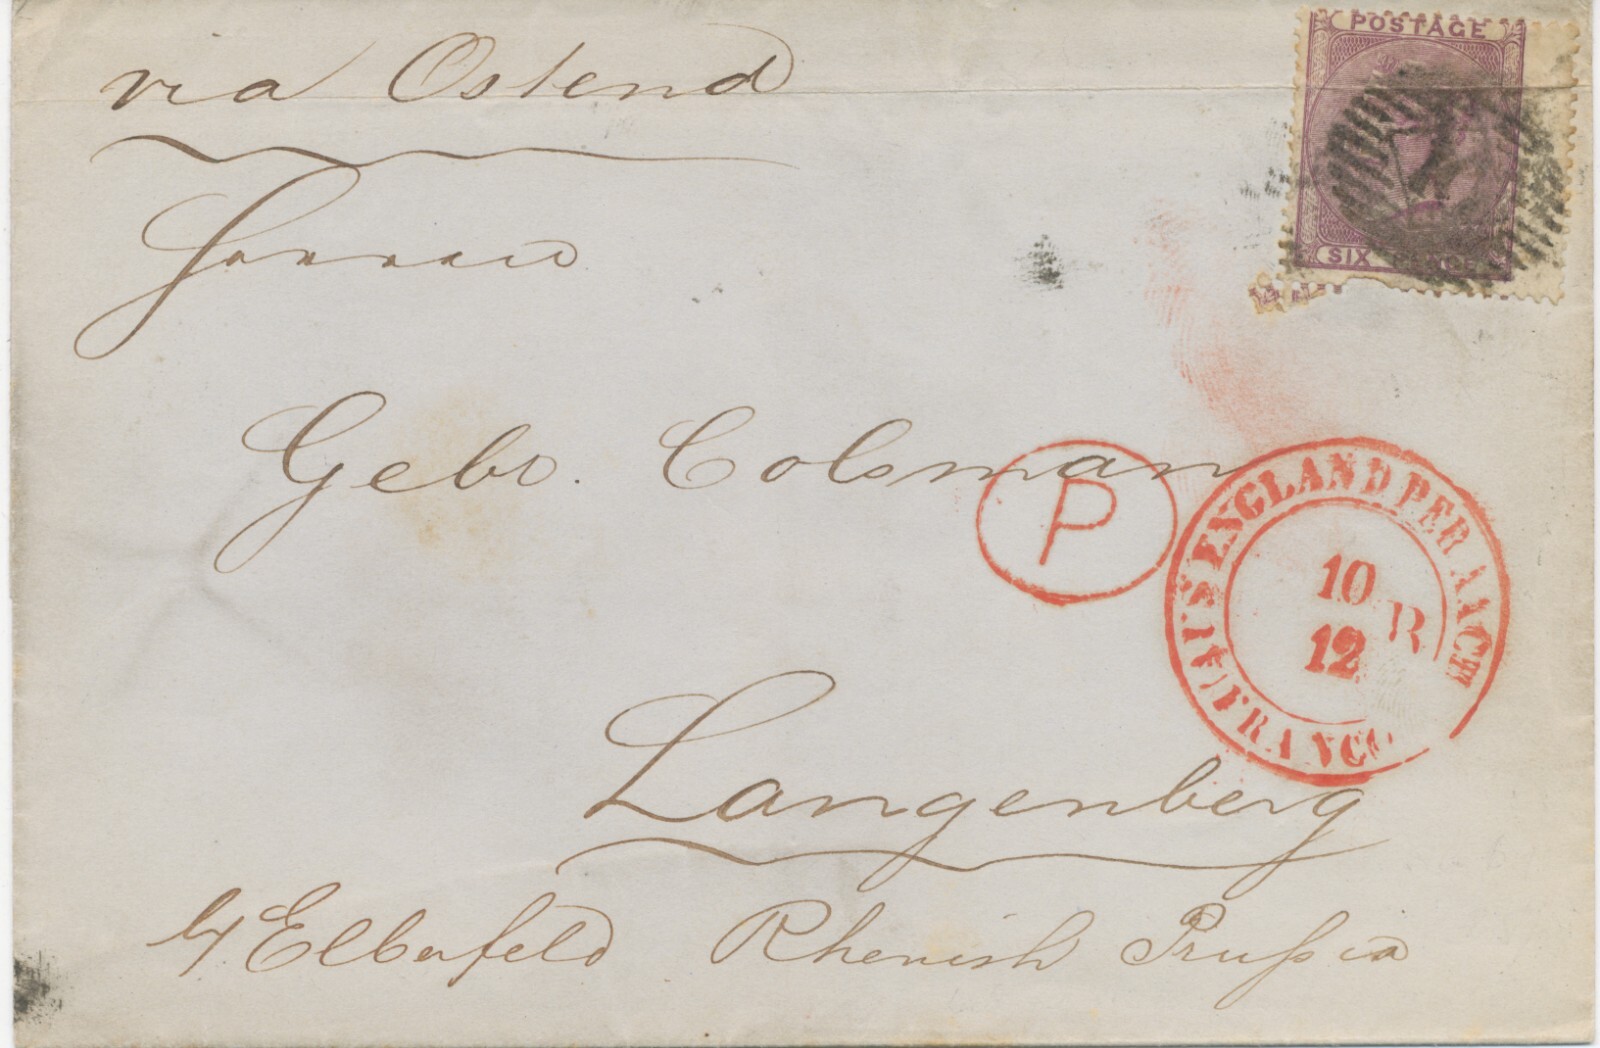 via Ostend
POSTAGE
SIX
Herren
Gebr. Colsman
P
AUS ENGLAND PER AACHEN
FRANCO
10
12
R
Langenberg
b/ Elberfeld Rhenish Prußia